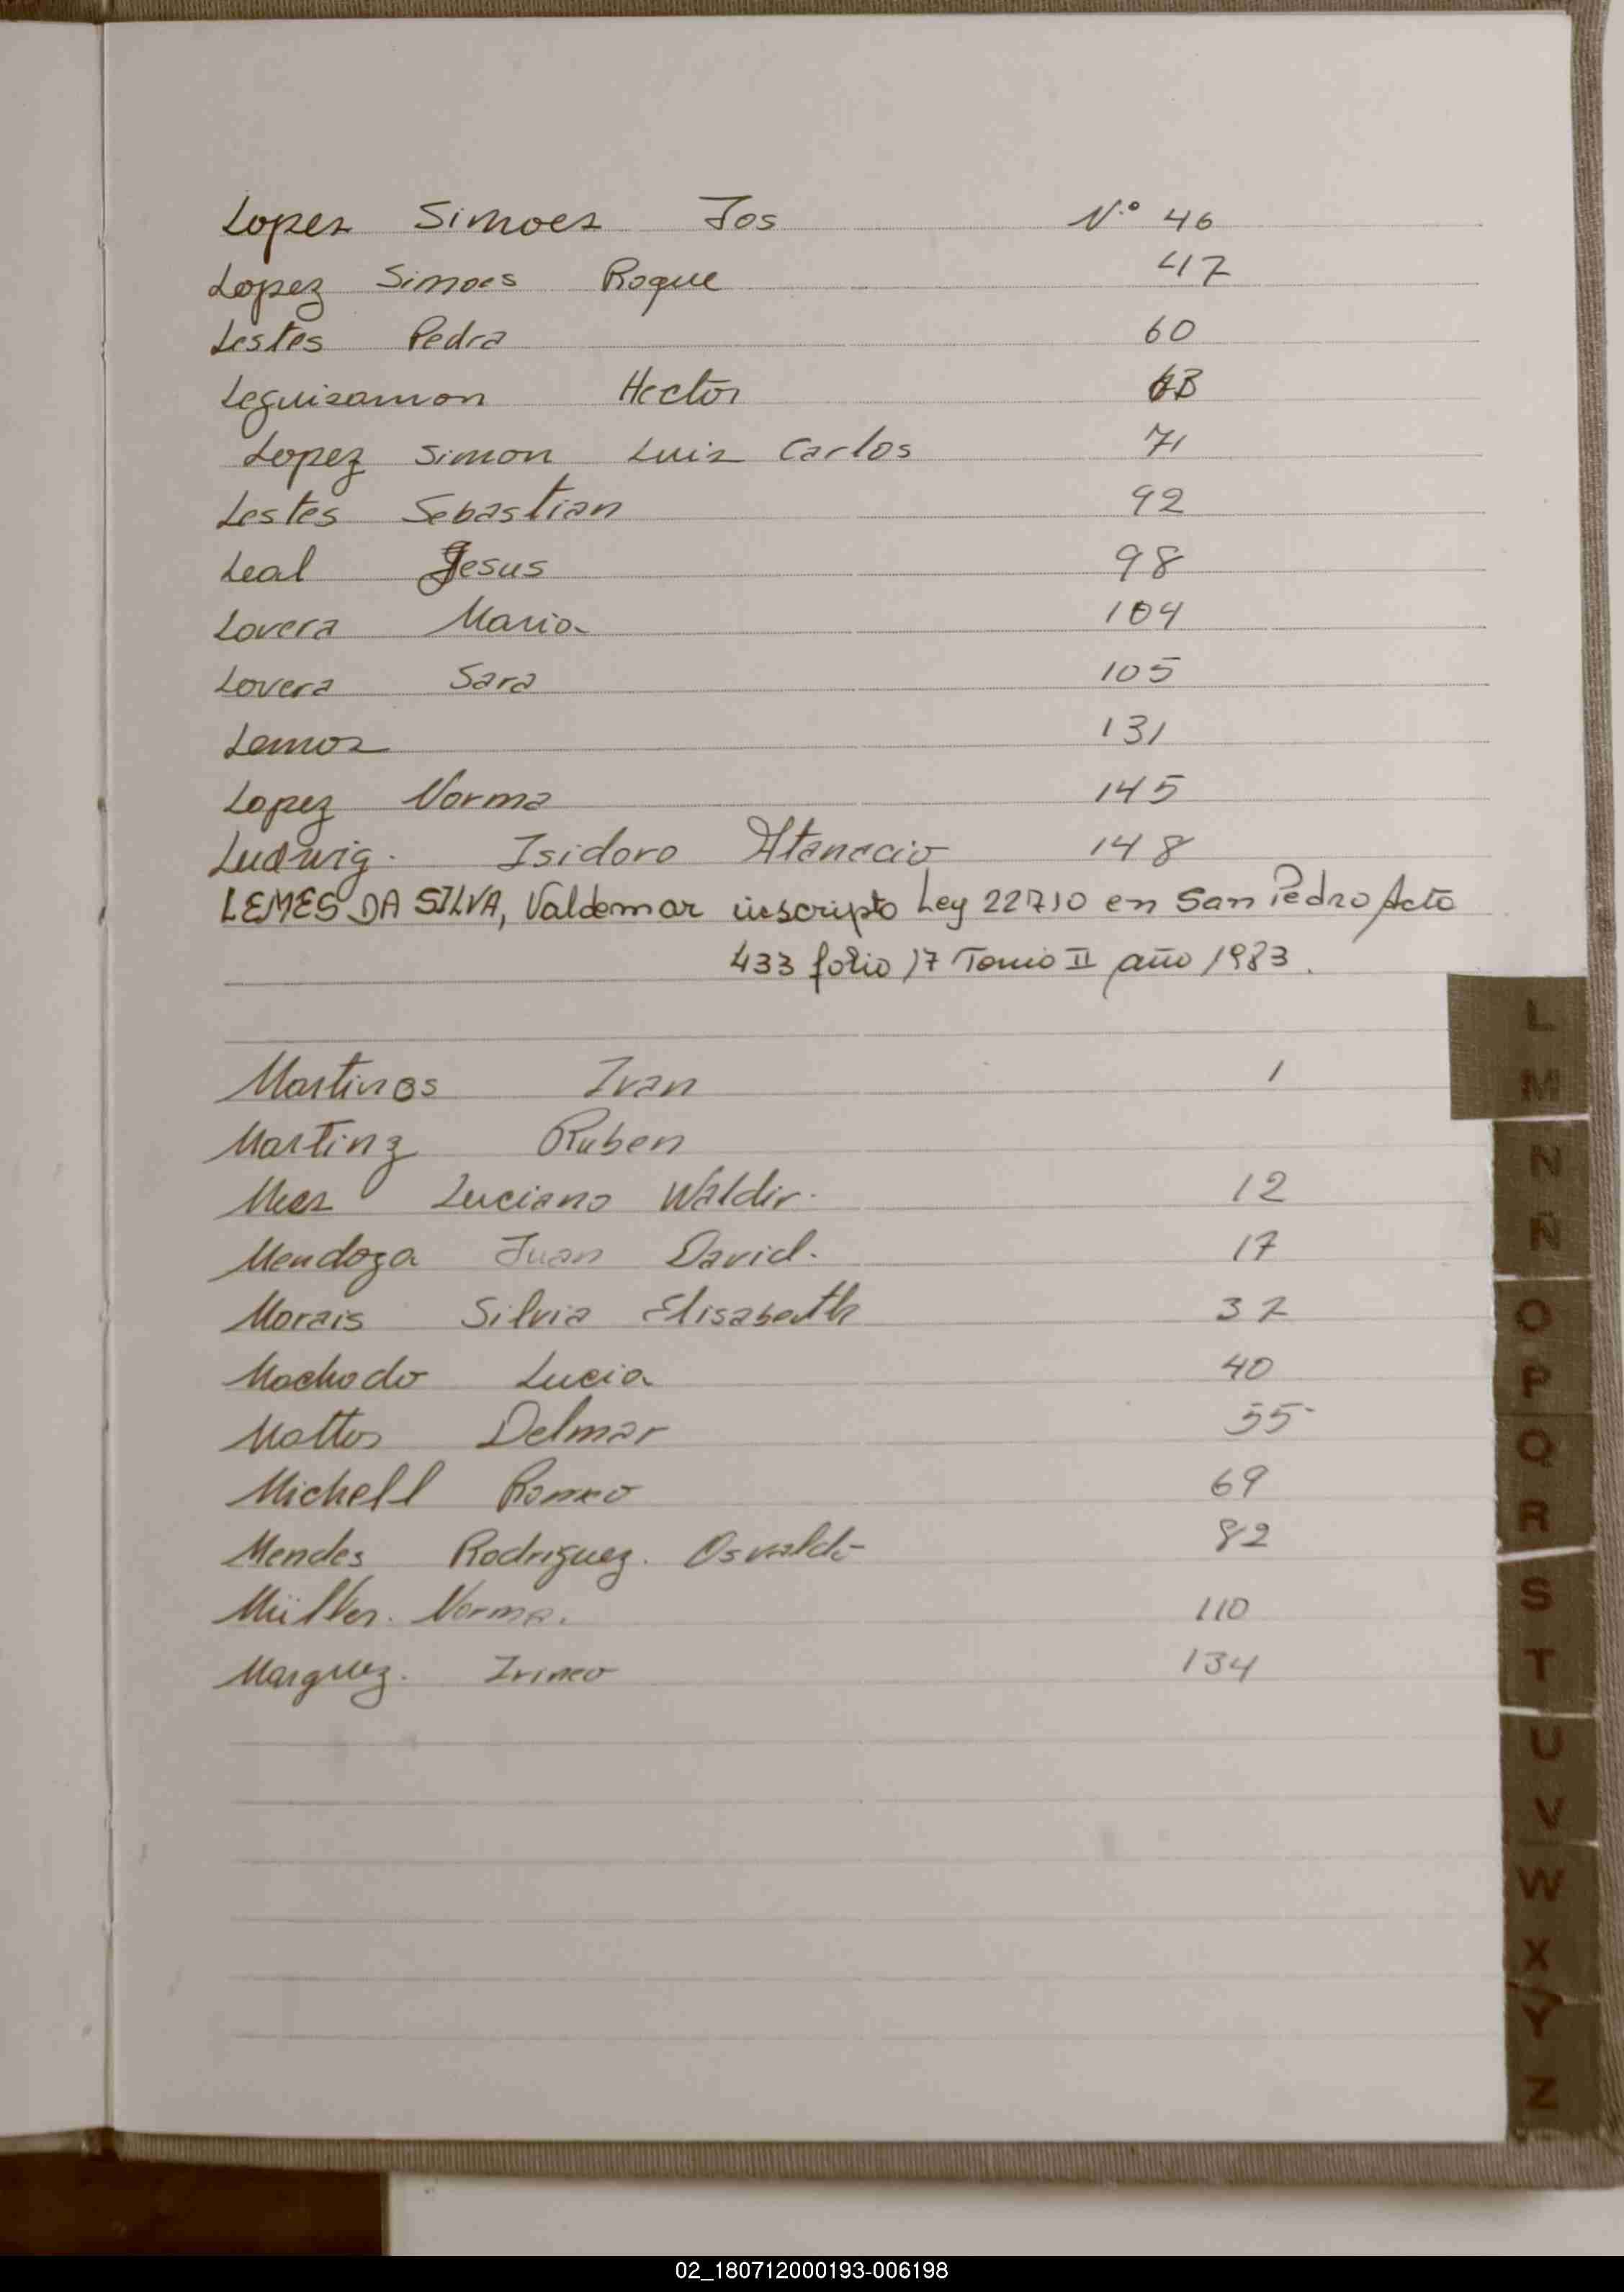 Lopez Simoez Jos N.º 46
Lopez Simoes Roque 47
Lestes Pedra 60
Leguisamon Hector
Lopez Simon Luiz Carlos 71
Lestes Sebastian 92
Leal Jesus 98
Lovera Maria 104
Lovera Sara 105
Lemoz 131
Lopez Norma 145
Ludwig. Isidoro Atanacio 148
LEMES DA SILVA, Valdemar inscripto Ley 22710 en San Pedro Acto
433 folio 17 Tomo II año 1983.
Martinos Ivan 1
Martinz Ruben
Luciano Waldir. 12
Mendoza Juan David. 17
Morais Silvia Elisabeth 37
Machado Lucia 40
Mattos Delmar 55
Michell 69
Mendes Rodriguez. Osvaldo 82
Müller. Norma. 110
Marquez. Irineo 134
L
M
N
Ñ
O
P
Q
R
S
T
U
V
W
X
Y
Z
02_180712000193-006198